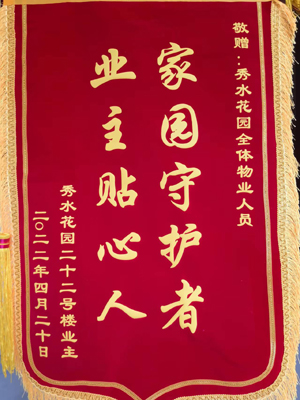 敬赠:秀水花园全体物业人员
家园守护者
业主贴心人
秀水花园二十二号楼业主
二〇二二年四月二十日